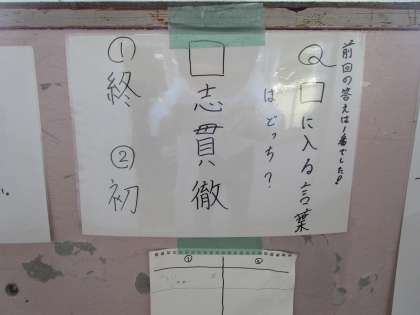 前回の答えは1番でした!
Q □に入る言葉
はどっち?
□志貫徹
① 終 ② 初
① ②